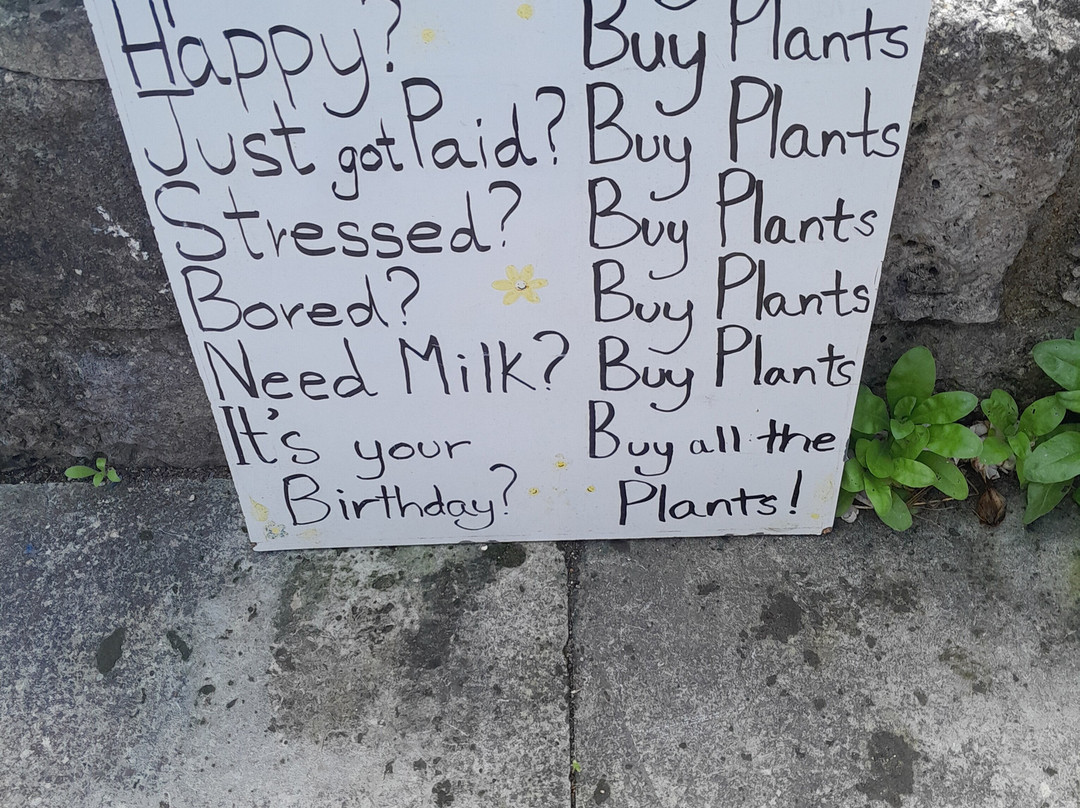 Happy? Buy Plants
Just got Paid? Buy Plants
Stressed? Buy Plants
Bored? Buy Plants
Need Milk? Buy Plants
It's your Buy all the
Birthday? Plants!